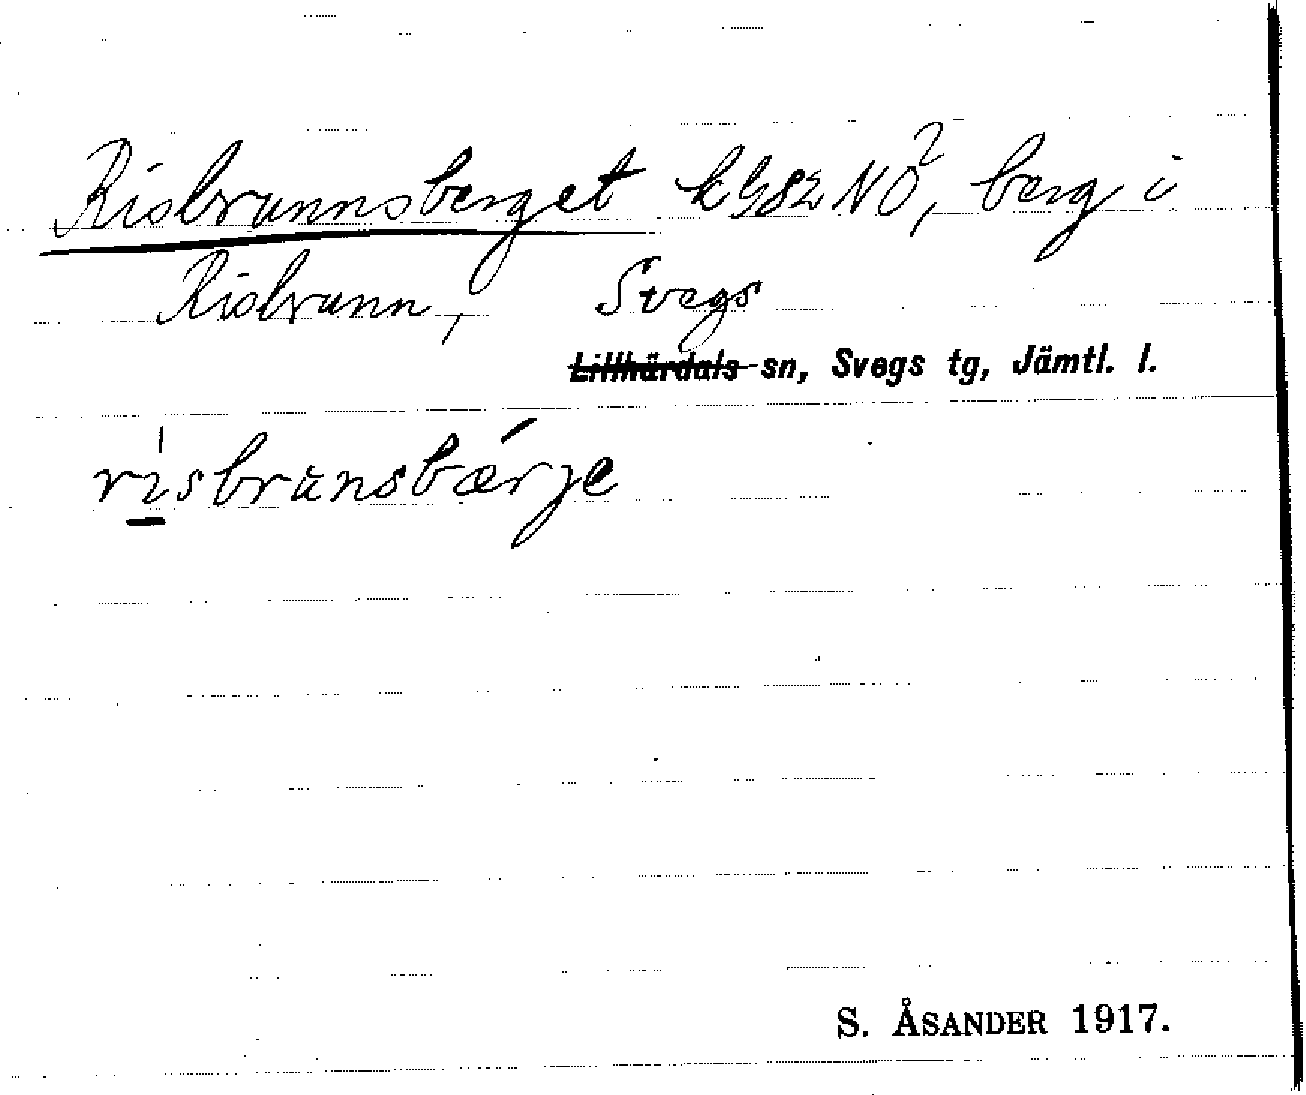 Risbrunnsberget k G82 NO², berg i
Risbrunn, Svegs
Lillhärdals sn, Svegs tg, Jämtl. l.
risbrunsbærje
S. ÅSANDER 1917.